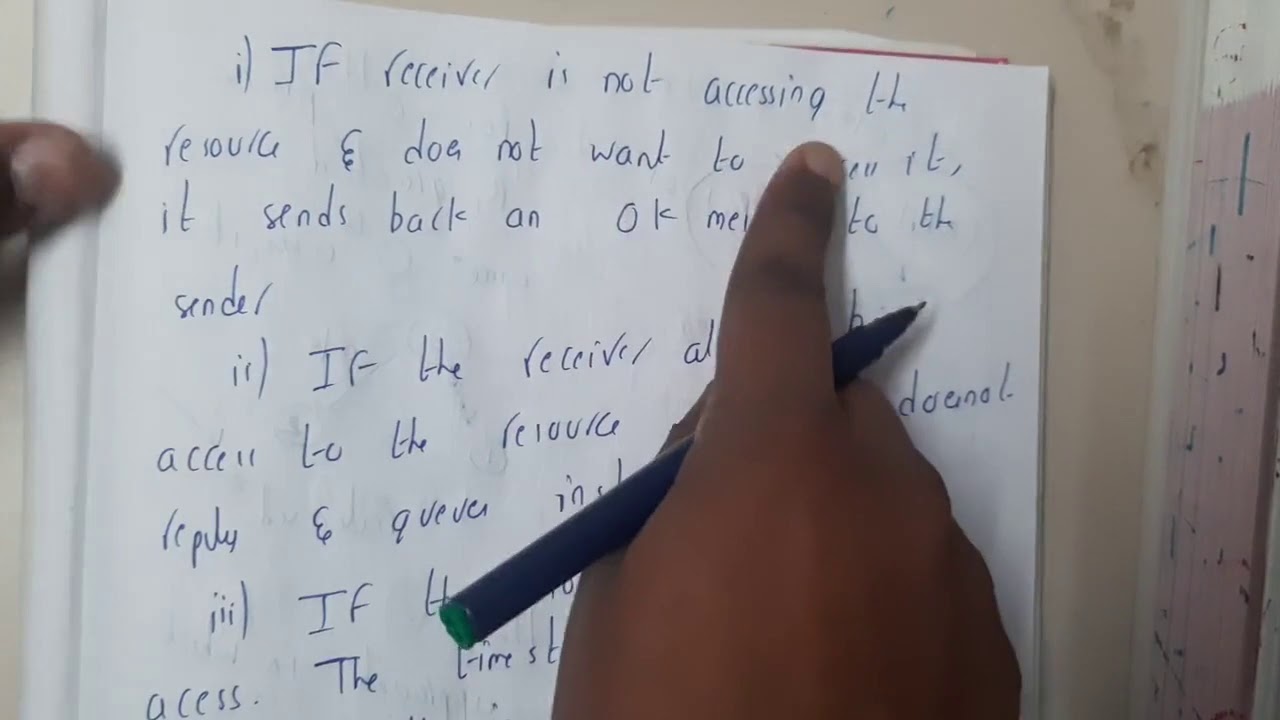 i) IF receiver is not accessing the
resource & does not want to it,
it sends back an OK to the
sender
ii) IF the receiver
doesnot
access to the resource
reply & queues
iii) IF
acess. The